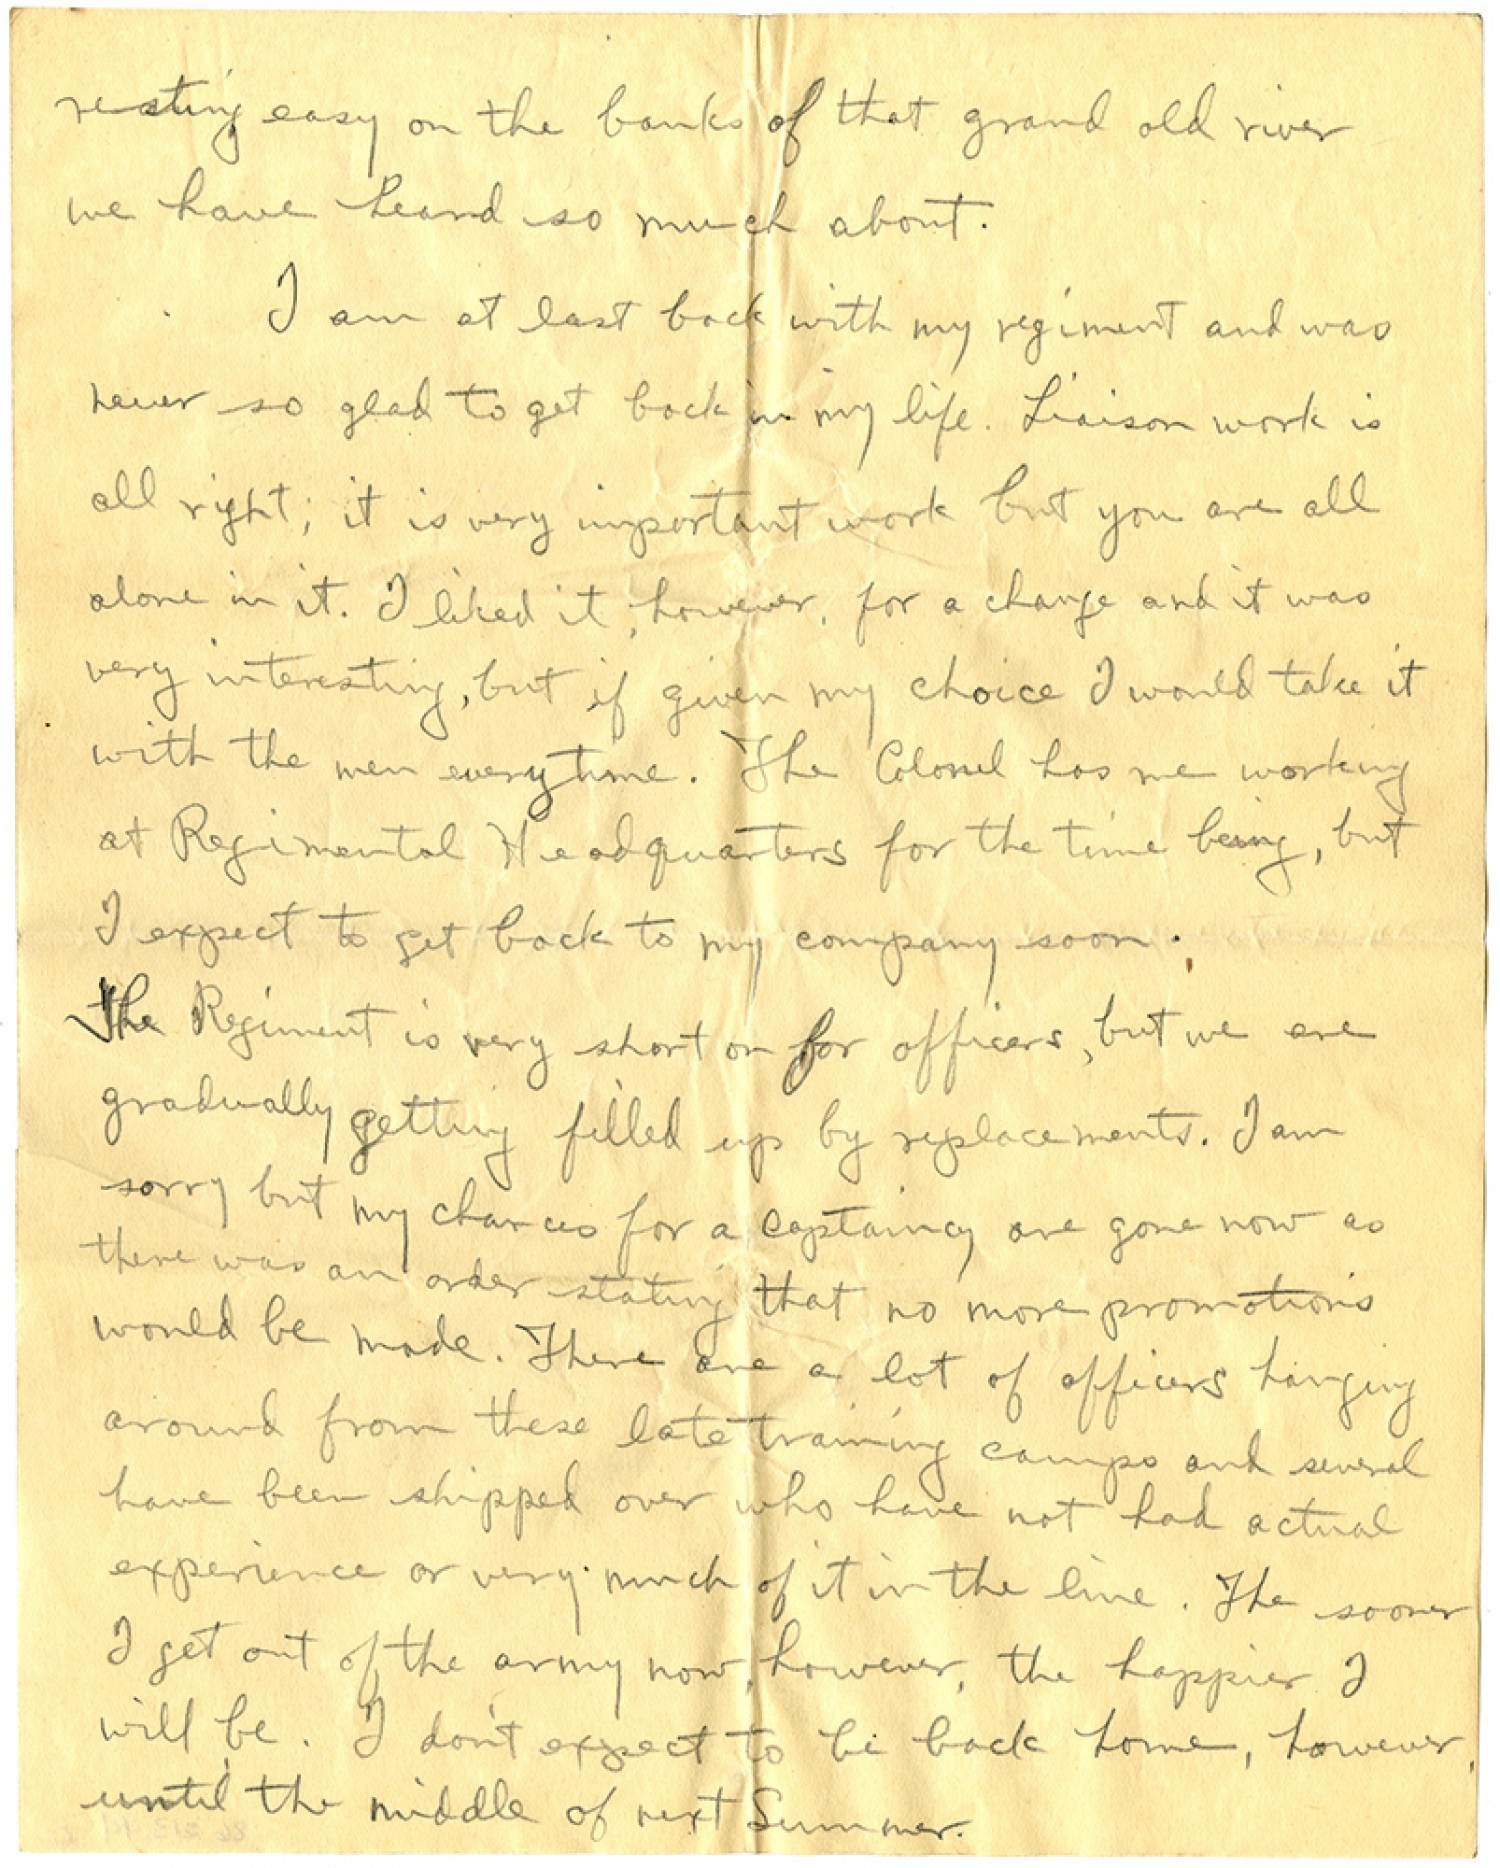 resting easy on the banks of that grand old river
we have heard so much about.
I am at last back with my regiment and was
never so glad to get back in my life. Liaison work is
all right; it is very important work but you are all
alone in it. I liked it, however, for a change and it was
very interesting, but if given my choice I would take it
with the men everytime. The Colonel has me working
at Regimental Headquarters for the time being, but
I expect to get back to my company soon.
The Regiment is very short on for officers, but we are
gradually getting filled up by replacements. I am
sorry but my chances for a captaincy are gone now as
there was an order stating that no more promotions
would be made. There are a lot of officers hanging
around from these late training camps and several
have been shipped over who have not had actual
experience or very much of it in the line. The sooner
I get out of the army now, however, the happier I
will be. I don't expect to be back home, however,
until the middle of next Summer.